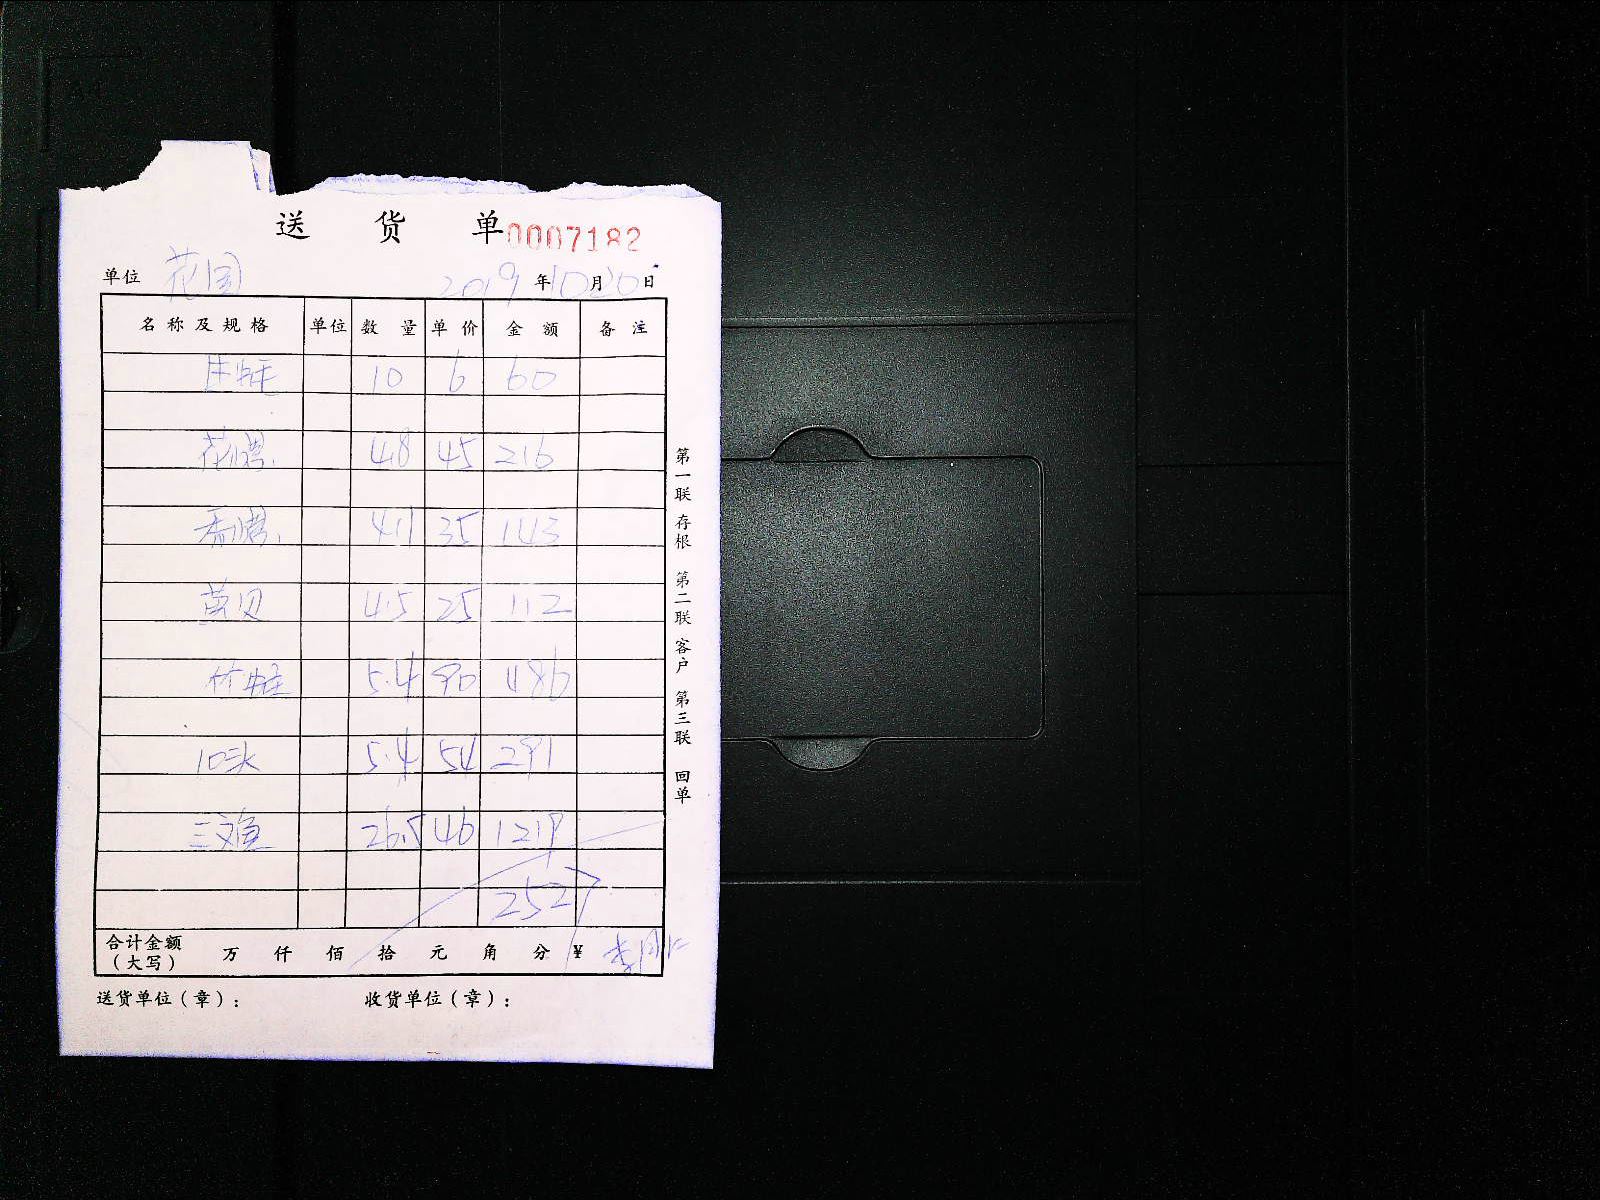 送 货 单 0007182
单位 花园 2019 年 10 月 20 日
名称及规格 单位 数量 单价 金额 备注
10 6 60
花 4.8 45 216
4.1 35 143
贝 4.5 25 112
5.4 90 486
10头 5.4 54 291
三文鱼 26.5 46 1219
2527
合计金额（大写） 万 仟 佰 拾 元 角 分 ¥
送货单位（章）： 收货单位（章）：
第一联 存根 第二联 客户 第三联 回单